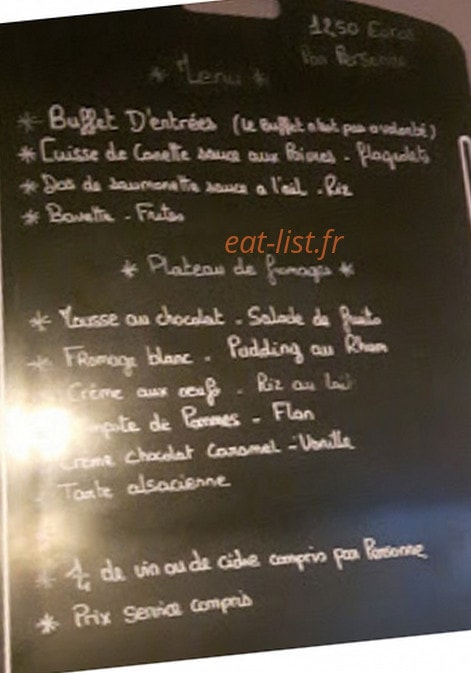 12,50 Euros
Par Personne
* Menu *
* Buffet D'entrées (Le Buffet n'est pas a volonté)
* Cuisse de Canette sauce aux Poivres - flageolets
* Dos de saumonette sauce a l'ail - Riz
* Bavette - Frites
eat-list.fr
* Plateau de fromages *
* Mousse au chocolat - Salade de fruits
* Fromage blanc - Pudding au Rhum
Crème aux oeufs - Riz au lait
Compote de Pommes - Flan
Crème chocolat Caramel - Vanille
Tarte alsacienne
* 1/4 de vin ou de cidre compris par Personne
* Prix Service compris